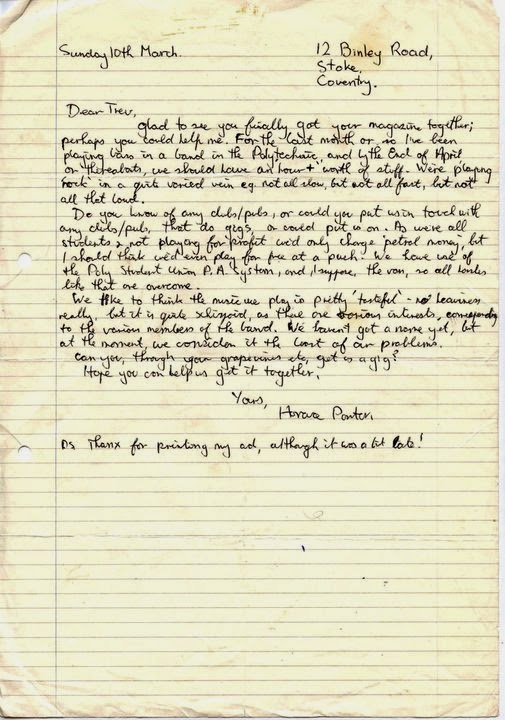 Sunday 10th March.
12 Binley Road,
Stoke,
Coventry.
Dear Trev,
glad to see you finally got your magazine together;
perhaps you could help me. For the last month or so I've been
playing bass in a band in the Polytechnic, and by the End of April
or thereabouts, we should have an hour + 's worth of stuff. We're 'playing
rock' in a quite varied vein eg. not all slow, but not all fast, but not
all that loud.
Do you know of any clubs/pubs, or could you put us in touch with
any clubs/pubs, that do gigs, or could put us on. As we're all
students & not playing for profit we'd only charge 'petrol money', but
I should think we'd even play for free at a push. We have use of
the Poly Student Union P.A. system, and, I suppose, the van, so all
like that are overcome.
We like to think the music we play is pretty 'tasteful' - no heaviness
really, but it is quite schizoid, as there are various interests, corresponding
to the various members of the band. We haven't got a name yet, but
at the moment, we consider it the least of our problems.
Can you, through your grapevines etc, get us a gig?
Hope you can help us get it together.
Yours,
Horace Panter.
PS Thanx for printing my ad, although it was a bit late!